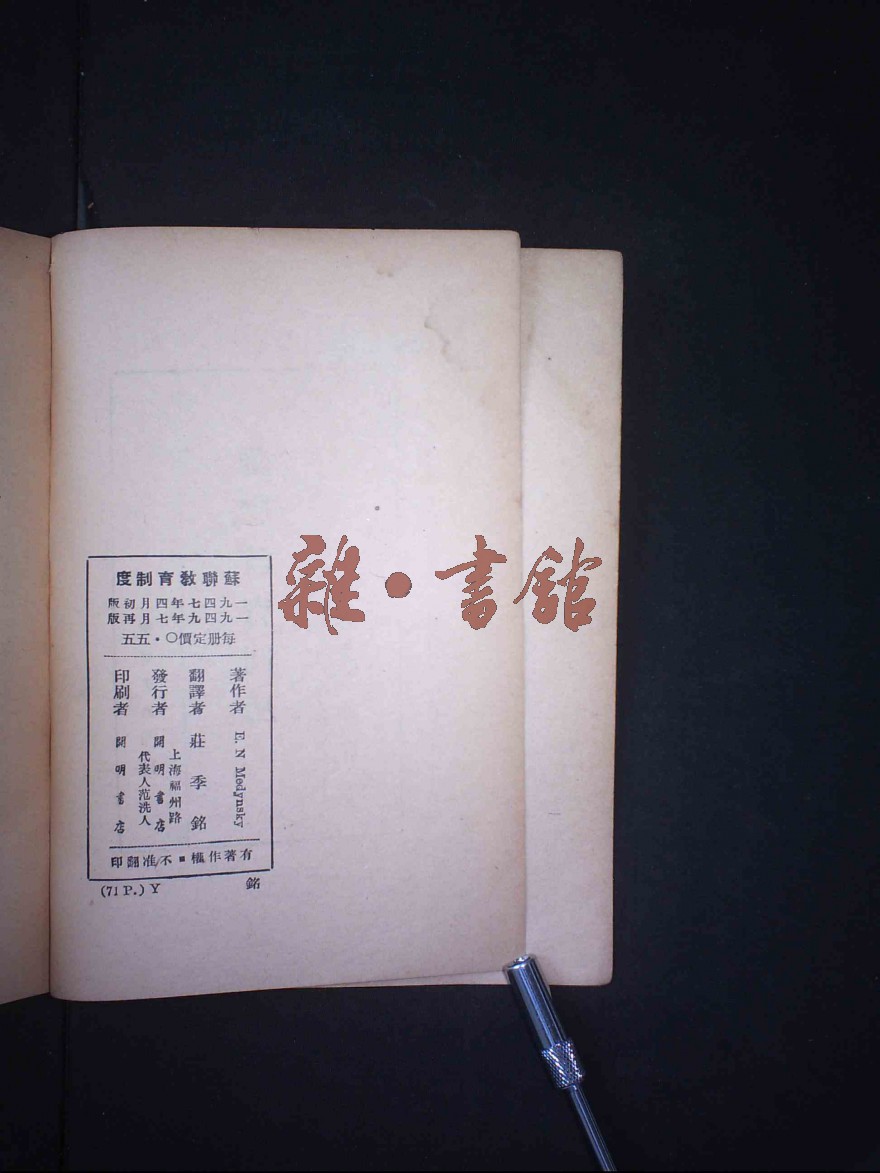 蘇聯教育制度
一九四七年四月初版
一九四九年七月再版
每册定價〇・五五
著作者 E. N Medynsky
翻譯者 莊季銘
發行者 開明書店
上海福州路
代表人范洗人
印刷者 開明書店
有著作權■不准翻印
(71 P.) Y
銘
雜・書館